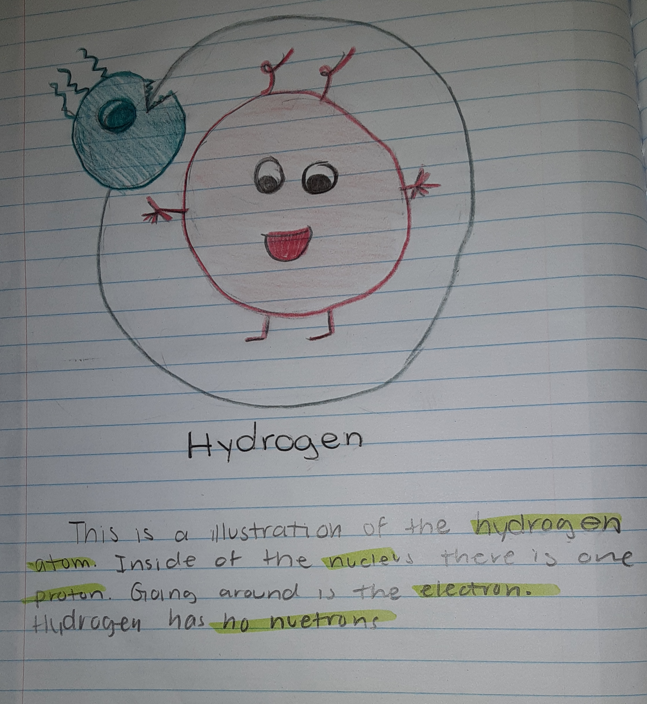 Hydrogen
This is a illustration of the hydrogen
atom. Inside of the nucleus there is one
proton. Going around is the electron.
Hydrogen has no nuetrons